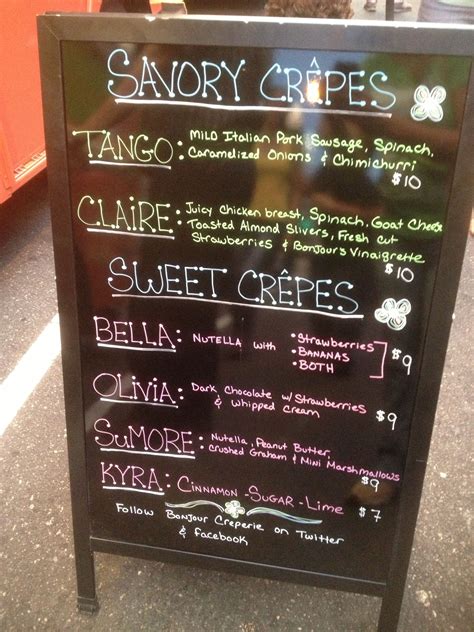 SAVORY CRÊPES
TANGO: MILD Italian Pork Sausage, Spinach,
Caramelized Onions & Chimichurri
$10
CLAIRE: Juicy Chicken breast, Spinach, Goat Cheese
Toasted Almond Slivers, Fresh cut
Strawberries & BonJour's Vinaigrette
$10
SWEET CRÊPES
BELLA: NUTELLA with • Strawberries
• BANANAS
• BOTH
$9
OLIVIA: Dark Chocolate w/ Strawberries
& Whipped Cream
$9
SuMORE: Nutella, Peanut Butter,
crushed Graham & Mini Marshmallows
$9
KYRA: CINNAMON - SUGAR - Lime $7
Follow BonJour Creperie on Twitter
& facebook